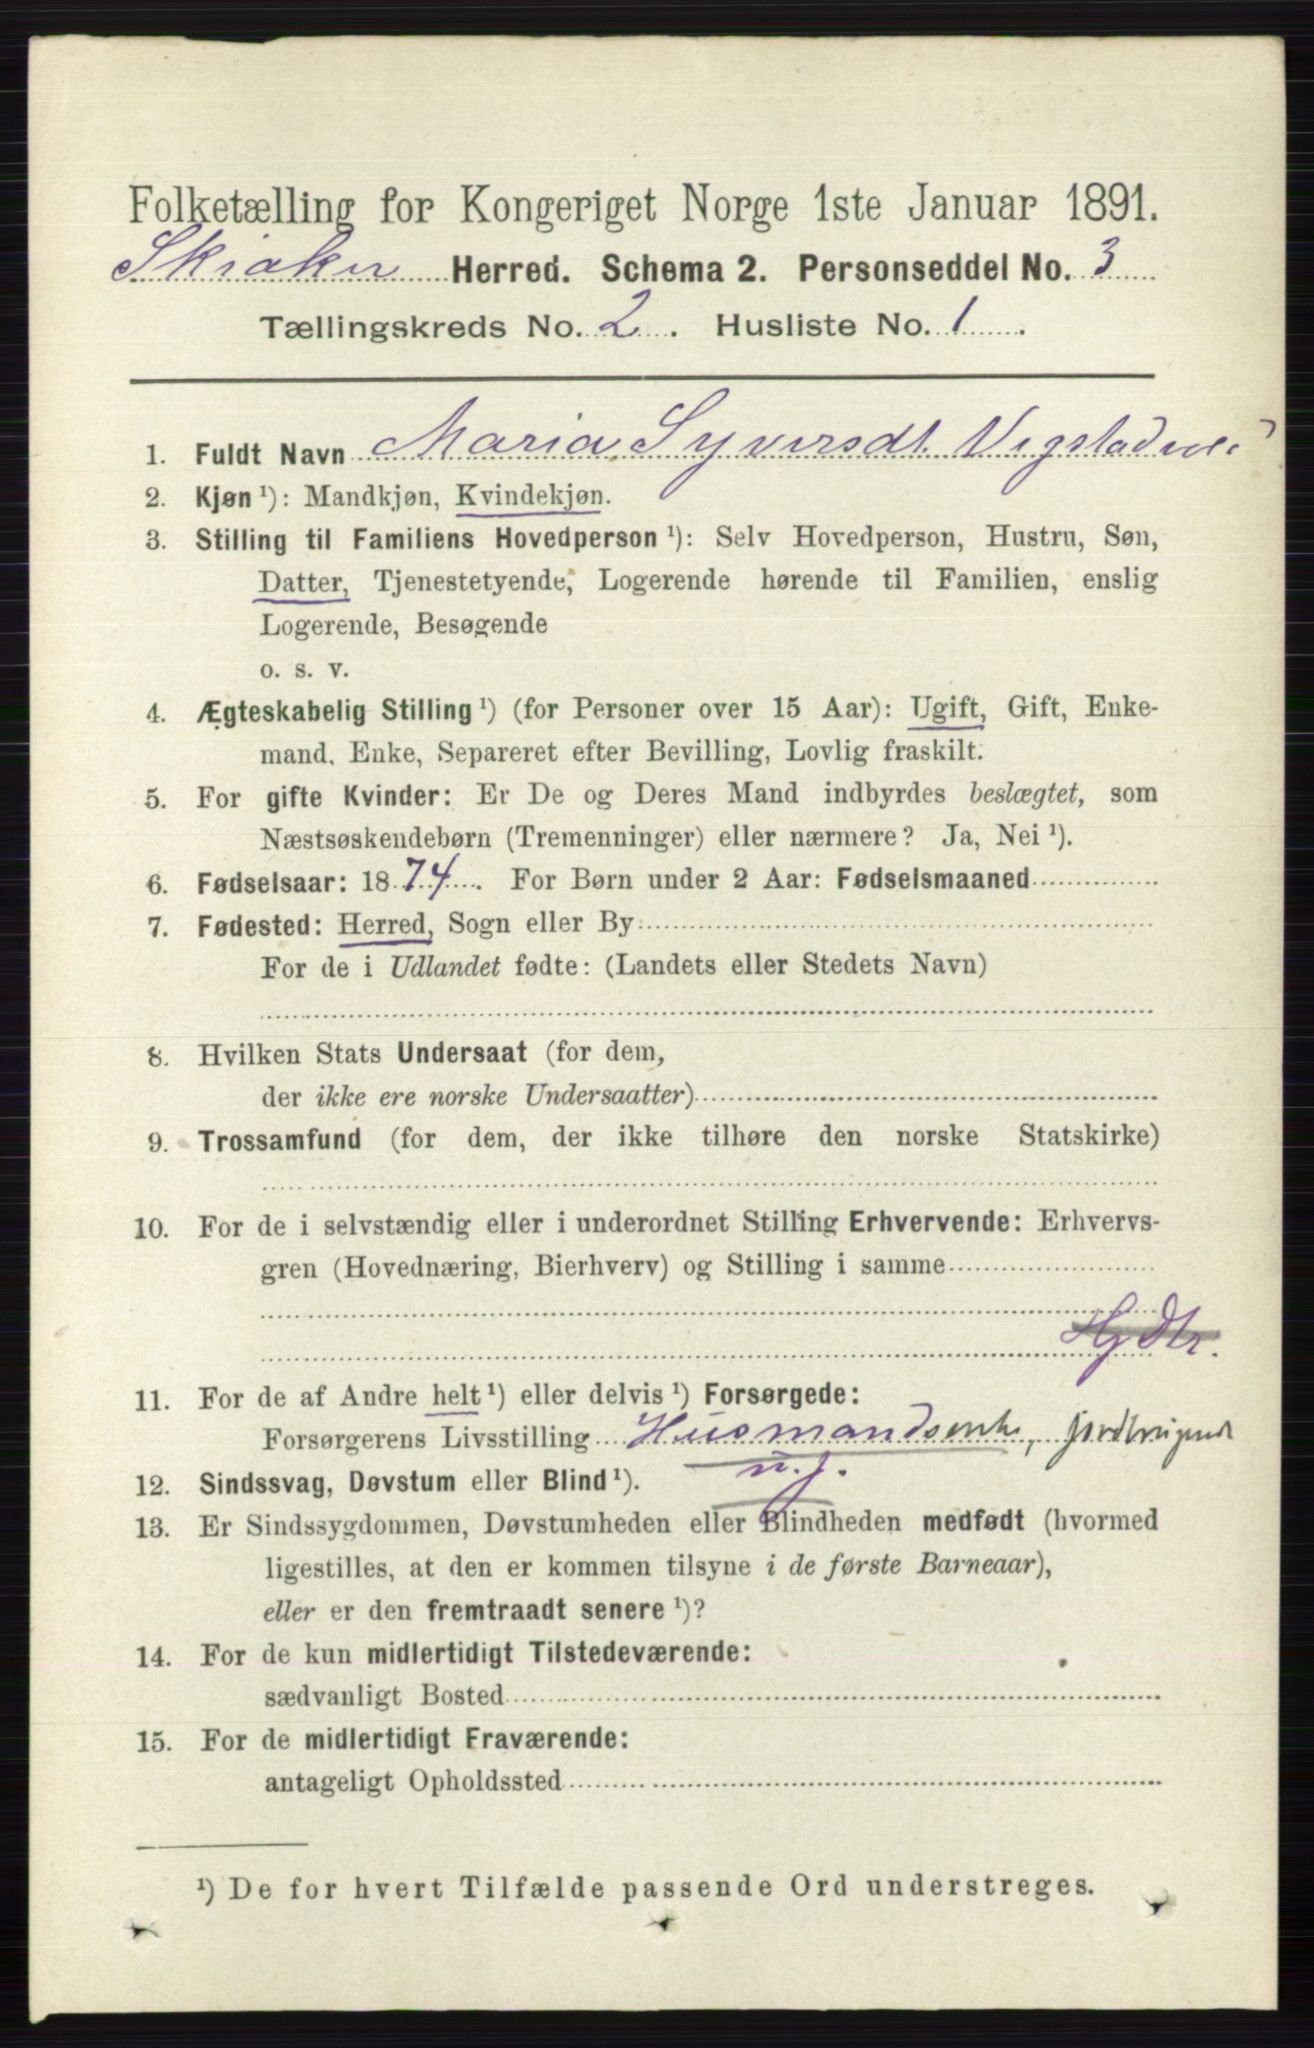 Folketælling for Kongeriget Norge 1ste Januar 1891.
Skiaker Herred. Schema 2. Personseddel No. 3
Tællingskreds No. 2. Husliste No. 1.
1. Fuldt Navn Maria Syversdt.
2. Kjøn ¹): Mandkjøn, Kvindekjøn.
3. Stilling til Familiens Hovedperson ¹): Selv Hovedperson, Hustru, Søn,
Datter, Tjenestetyende, Logerende hørende til Familien, enslig
Logerende, Besøgende
o. s. v.
4. Ægteskabelig Stilling ¹) (for Personer over 15 Aar): Ugift, Gift, Enke-
mand, Enke, Separeret efter Bevilling, Lovlig fraskilt.
5. For gifte Kvinder: Er De og Deres Mand indbyrdes beslægtet, som
Næstsøskendebørn (Tremenninger) eller nærmere? Ja, Nei ¹).
6. Fødselsaar: 1874. For Børn under 2 Aar: Fødselsmaaned
7. Fødested: Herred, Sogn eller By
For de i Udlandet fødte: (Landets eller Stedets Navn)
8. Hvilken Stats Undersaat (for dem,
der ikke ere norske Undersaatter)
9. Trossamfund (for dem, der ikke tilhøre den norske Statskirke)
10. For de i selvstændig eller i underordnet Stilling Erhvervende: Erhvervs-
gren (Hovednæring, Bierhverv) og Stilling i samme
Hj Dtr.
11. For de af Andre helt ¹) eller delvis ¹) Forsørgede:
Forsørgerens Livsstilling Husmandsenke, jordbrugende
m. j.
12. Sindssvag, Døvstum eller Blind ¹).
13. Er Sindssygdommen, Døvstumheden eller Blindheden medfødt (hvormed
ligestilles, at den er kommen tilsyne i de første Barneaar),
eller er den fremtraadt senere ¹)?
14. For de kun midlertidigt Tilstedeværende:
sædvanligt Bosted
15. For de midlertidigt Fraværende:
antageligt Opholdssted
¹) De for hvert Tilfælde passende Ord understreges.